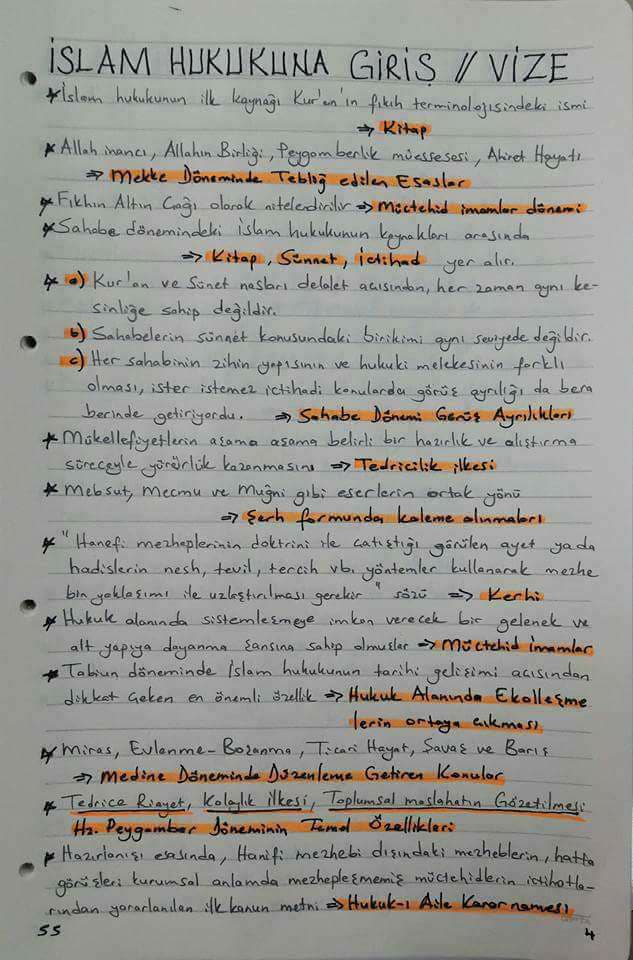 İSLAM HUKUKUNA GİRİŞ // VİZE
* İslam hukukunun ilk kaynağı Kur'an'ın fıkıh terminolojisindeki ismi
⇒ Kitap
* Allah inancı, Allahın Birliği, Peygamberlik müessesesi, Ahiret Hayatı
⇒ Mekke Döneminde Tebliğ edilen Esaslar
* Fıkhın Altın Çağı olarak nitelendirilir ⇒ Müctehid imamlar dönemi
* Sahabe dönemindeki İslam hukukunun kaynakları arasında
⇒ Kitap, Sünnet, İctihad yer alır.
* a) Kur'an ve Sünet nasları delalet açısından, her zaman aynı ke-
sinliğe sahip değildir.
b) Sahabelerin sünnet konusundaki birikimi aynı seviyede değildir.
c) Her sahabinin zihin yapısının ve hukuki melekesinin farklı
olması, ister istemez ictihadi konularda görüş ayrılığı da bera
berinde getiriyordu. ⇒ Sahabe Dönemi Görüş Ayrılıkları
* Mükellefiyetlerin aşama aşama belirli bir hazırlık ve alıştırma
süreceyle yürürlük kazanmasını ⇒ Tedricilik ilkesi
* Mebsut, Mecmu ve Muğni gibi eserlerin ortak yönü
⇒ Şerh formunda kaleme alınmaları
* "Hanefi mezheplerinin doktrini ile çatıştığı görülen ayet yada
hadislerin nesh, tevil, tercih vb. yöntemler kullanarak mezhe
bin yaklaşımı ile uzlaştırılması gerekir" sözü ⇒ Kerhi
* Hukuk alanında sistemleşmeye imkan verecek bir gelenek ve
alt yapıya dayanma şansına sahip olmuşlar ⇒ Müctehid İmamlar
* Tabiun döneminde İslam hukukunun tarihi gelişimi açısından
dikkat çeken en önemli özellik ⇒ Hukuk Alanında Ekolleşme
lerin ortaya çıkması
* Miras, Evlenme-Boşanma, Ticari Hayat, Savaş ve Barış
⇒ Medine Döneminde Düzenleme Getiren Konular
* Tedrice Riayet, Kolaylık İlkesi, Toplumsal maslahatın Gözetilmesi
Hz. Peygamber Döneminin Temel Özellikleri
* Hazırlanışı esasında, Hanifi mezhebi dışındaki mezheblerin, hatta
görüşleri kurumsal anlamda mezhepleşmemiş müctehidlerin ictihatla-
rından yararlanılan ilk kanun metni ⇒ Hukuk-ı Aile Kararnamesi
55 4